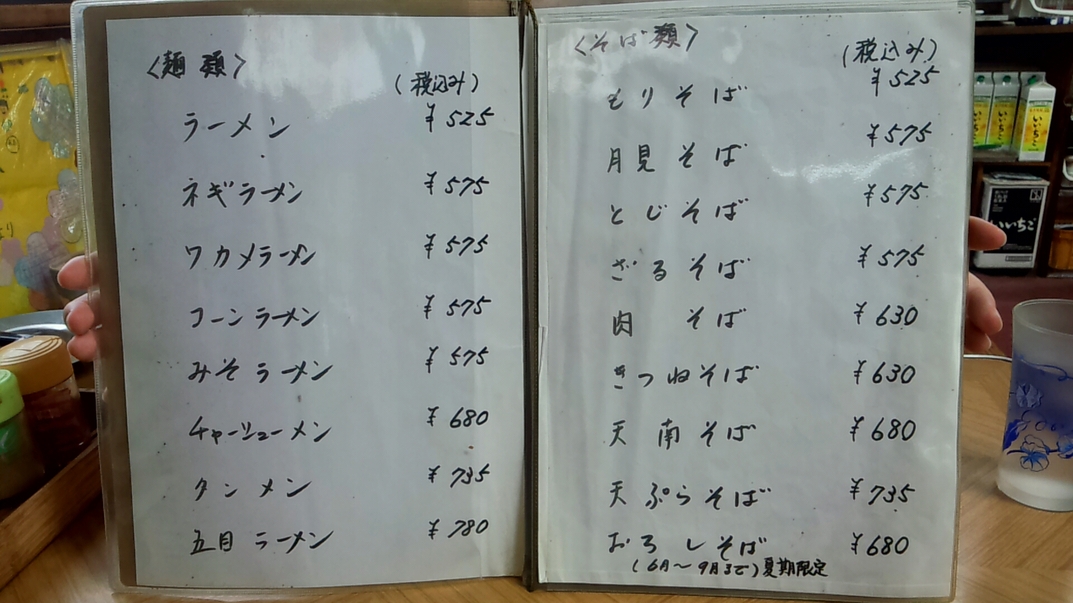 〈麺類〉
(税込み)
ラーメン ¥525
ネギラーメン ¥575
ワカメラーメン ¥575
コーンラーメン ¥575
みそラーメン ¥575
チャーシューメン ¥680
タンメン ¥735
五目ラーメン ¥780
〈そば類〉
(税込み)
もりそば ¥525
月見そば ¥575
とじそば ¥575
ざるそば ¥575
肉そば ¥630
きつねそば ¥630
天南そば ¥680
天ぷらそば ¥735
おろしそば ¥680
(6月〜9月まで)夏期限定
いいちこ
いいちこ
いいちこ
いいちこ